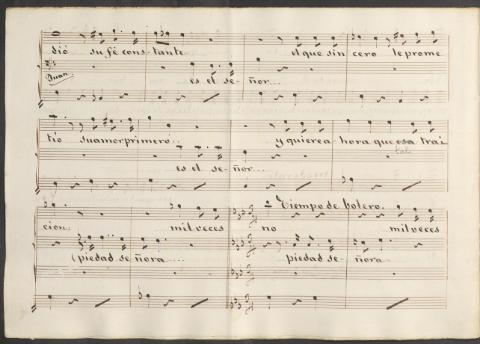 dió su fé cons-tante el que sin cero le prome
Juan
es el se-ñor...
tió su amor primero... y quiere a hora que esa trai
es el se-ñor...
Tiempo de bolero.
cion. mil veces no mil veces
(piedad señora..... piedad se-ñora